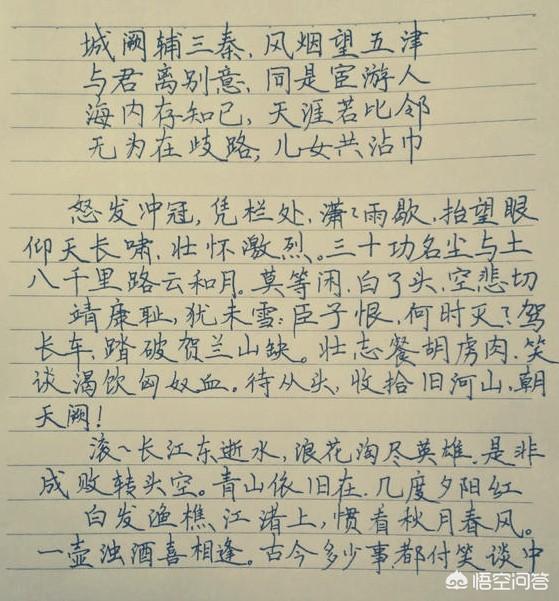 城阙辅三秦,风烟望五津
与君离别意,同是宦游人
海内存知己,天涯若比邻
无为在歧路,儿女共沾巾
怒发冲冠,凭栏处,潇〻雨歇,抬望眼
仰天长啸,壮怀激烈。三十功名尘与土
八千里路云和月。莫等闲,白了头,空悲切
靖康耻,犹未雪;臣子恨,何时灭?驾
长车,踏破贺兰山缺。壮志餐胡虏肉,笑
谈渴饮匈奴血。待从头,收拾旧河山,朝
天阙!
滚~长江东逝水,浪花淘尽英雄.是非
成败转头空。青山依旧在.几度夕阳红
白发渔樵江渚上,惯看秋月春风。
一壶浊酒喜相逢。古今多少事,都付笑谈中
悟空问答